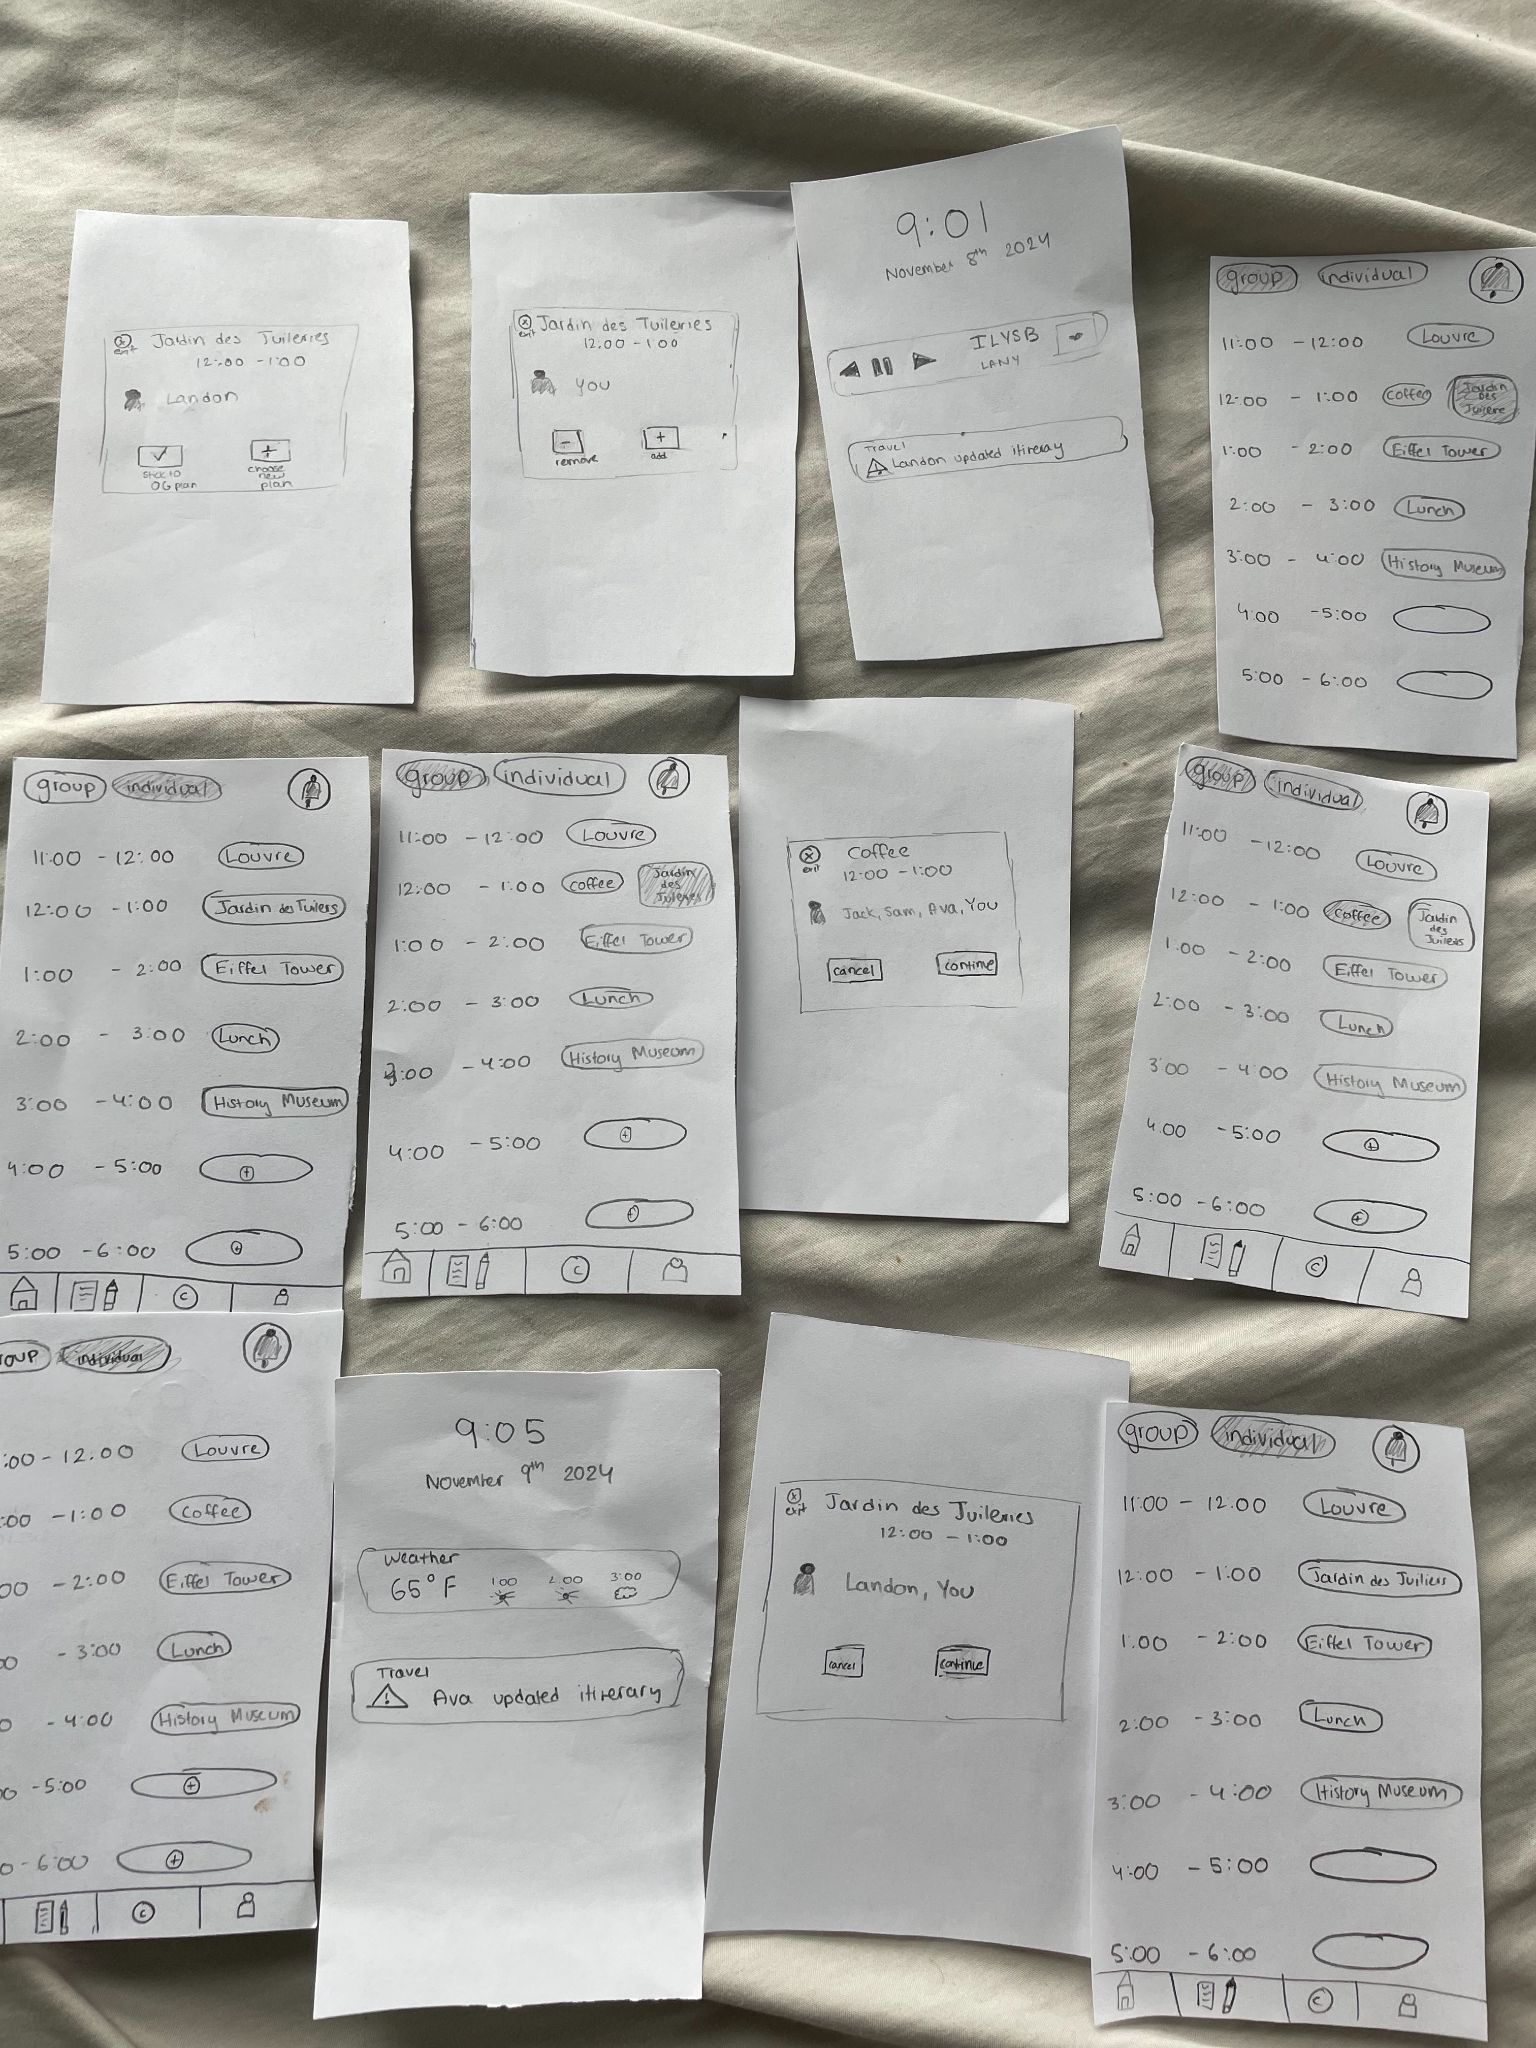 exit Jardin des Tuileries
12:00 - 1:00
Landon
stick to OG plan
choose new plan
exit Jardin des Tuileries
12:00 - 1:00
You
remove
add
9:01
November 8th 2024
ILYSB
LANY
Travel
Landon updated itinerary
group individual
11:00 - 12:00 Louvre
12:00 - 1:00 Coffee Jardin des Tuilerie
1:00 - 2:00 Eiffel Tower
2:00 - 3:00 Lunch
3:00 - 4:00 History Museum
4:00 - 5:00
5:00 - 6:00
group individual
11:00 - 12:00 Louvre
12:00 - 1:00 Jardin des Tuilers
1:00 - 2:00 Eiffel Tower
2:00 - 3:00 Lunch
3:00 - 4:00 History Museum
4:00 - 5:00 +
5:00 - 6:00 +
C
group individual
11:00 - 12:00 Louvre
12:00 - 1:00 Coffee Jardin des Tuileries
1:00 - 2:00 Eiffel Tower
2:00 - 3:00 Lunch
3:00 - 4:00 History Museum
4:00 - 5:00 +
5:00 - 6:00 +
C
exit Coffee
12:00 - 1:00
Jack, Sam, Ava, You
cancel continue
group individual
11:00 - 12:00 Louvre
12:00 - 1:00 Coffee Jardin des Tuileries
1:00 - 2:00 Eiffel Tower
2:00 - 3:00 Lunch
3:00 - 4:00 History Museum
4:00 - 5:00 +
5:00 - 6:00 +
C
oup individual
:00 - 12:00 Louvre
:00 - 1:00 Coffee
00 - 2:00 Eiffel Tower
0 - 3:00 Lunch
0 - 4:00 History Museum
00 - 5:00 +
0 - 6:00 +
C
9:05
November 9th 2024
Weather
65°F 1:00 2:00 3:00
Travel
Ava updated itinerary
exit Jardin des Tuileries
12:00 - 1:00
Landon, You
cancel continue
group individual
11:00 - 12:00 Louvre
12:00 - 1:00 Jardin des Tuiliers
1:00 - 2:00 Eiffel Tower
2:00 - 3:00 Lunch
3:00 - 4:00 History Museum
4:00 - 5:00
5:00 - 6:00
C